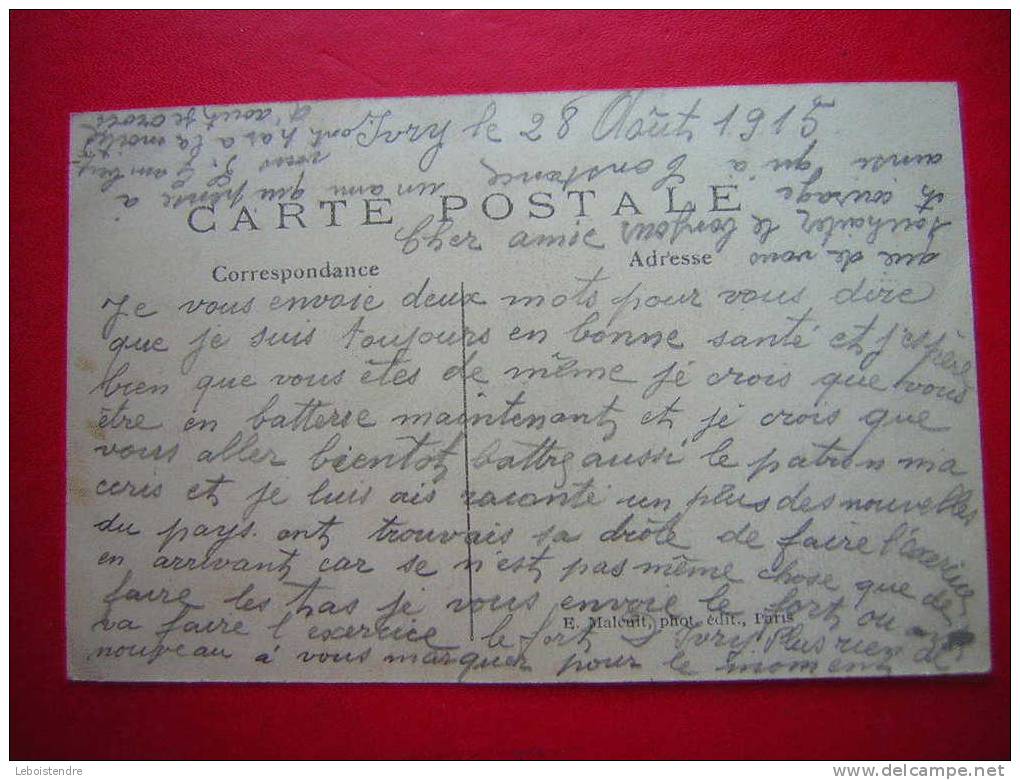 Ivry le 28 Août 1915
CARTE POSTALE
Cher amie
Correspondance
Adresse
Je vous envoie deux mots pour vous dire
que je suis toujours en bonne santé et j'espère
bien que vous êtes de même je crois que vous
être en batterse maintenant et je crois que
vous aller bientot battre aussi le patron ma
ecris et je luis ais raconté un plus des nouvelles
du pays. ont trouvais sa drôle de faire l'exercice
en arrivant car se n'est pas même chose que de
faire les tas je vous envoie le fort ou
E. Malcuit, phot. édit., Paris
va faire l'exercice le fort d'Ivry. Plus rien de
nouveau à vous marquer pour le moment
que de vous
souhaiter le bonjour
et courage
ainsi qu'à Constance
un ami qui pense à
vous
ont tas a la moitié
d'aout je crois